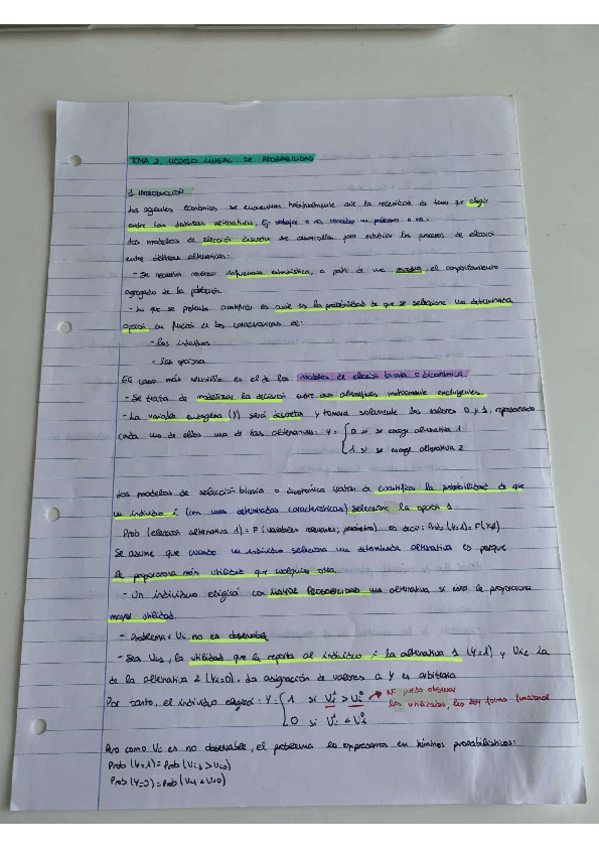 TEMA 2. MODELO LINEAL DE PROBABILIDAD
1. INTRODUCCIÓN
Los agentes económicos se encuentran habitualmente ante la necesidad de tener que elegir
entre las distintas alternativas. Ej: trabajar o no, conceder un préstamo o no.
Los modelos de elección discreta se desarrollan para estudiar los procesos de elección
entre distintas alternativas:
- Se necesita realizar inferencia estadística, a partir de una muestra, el comportamiento
agregado de la población.
- Lo que se pretende cuantificar es cuál es la probabilidad de que se seleccione una determinada
opción en función de las características de:
- los individuos
- las opciones
El caso más sencillo es el de los modelos de elección binaria o dicotómica.
- Se trata de modelizar la decisión entre dos alternativas mutuamente excluyentes
- La variable endógena (Y) será discreta y tomará solamente los valores 0 y 1, representando
cada uno de ellos una de las alternativas: Y = { 0 si se escoge alternativa 1
1 si se escoge alternativa 2
Los modelos de selección binaria o dicotómica tratan de cuantificar la probabilidad de que
un individuo i (con unas determinadas características) seleccione la opción 1
Prob (elección alternativa 1) = F (variables relevantes; parámetros) es decir: Prob (Y=1) = F(Xβ)
Se asume que cuando un individuo selecciona una determinada alternativa es porque
le proporciona más utilidad que cualquier otra
- Un individuo elegirá con MAYOR PROBABILIDAD una alternativa si esta le proporciona
mayor utilidad.
- Problema: Ui no es observable
- Sea Ui1, la utilidad que le reporta al individuo i la alternativa 1 (Y=1) y Ui0 la
de la alternativa 2 (Y=0). La asignación de valores a Y es arbitraria
Por tanto, el individuo elegirá: Y = { 1 si Ui1 > Ui0 → No puedo observar
las utilidades, les doy forma funcional
0 si Ui1 < Ui0
Pero como Ui es no observable, el problema lo expresamos en términos probabilísticos:
Prob (Y=1) = Prob (Ui1 > Ui0)
Prob (Y=0) = Prob (Ui1 < Ui0)